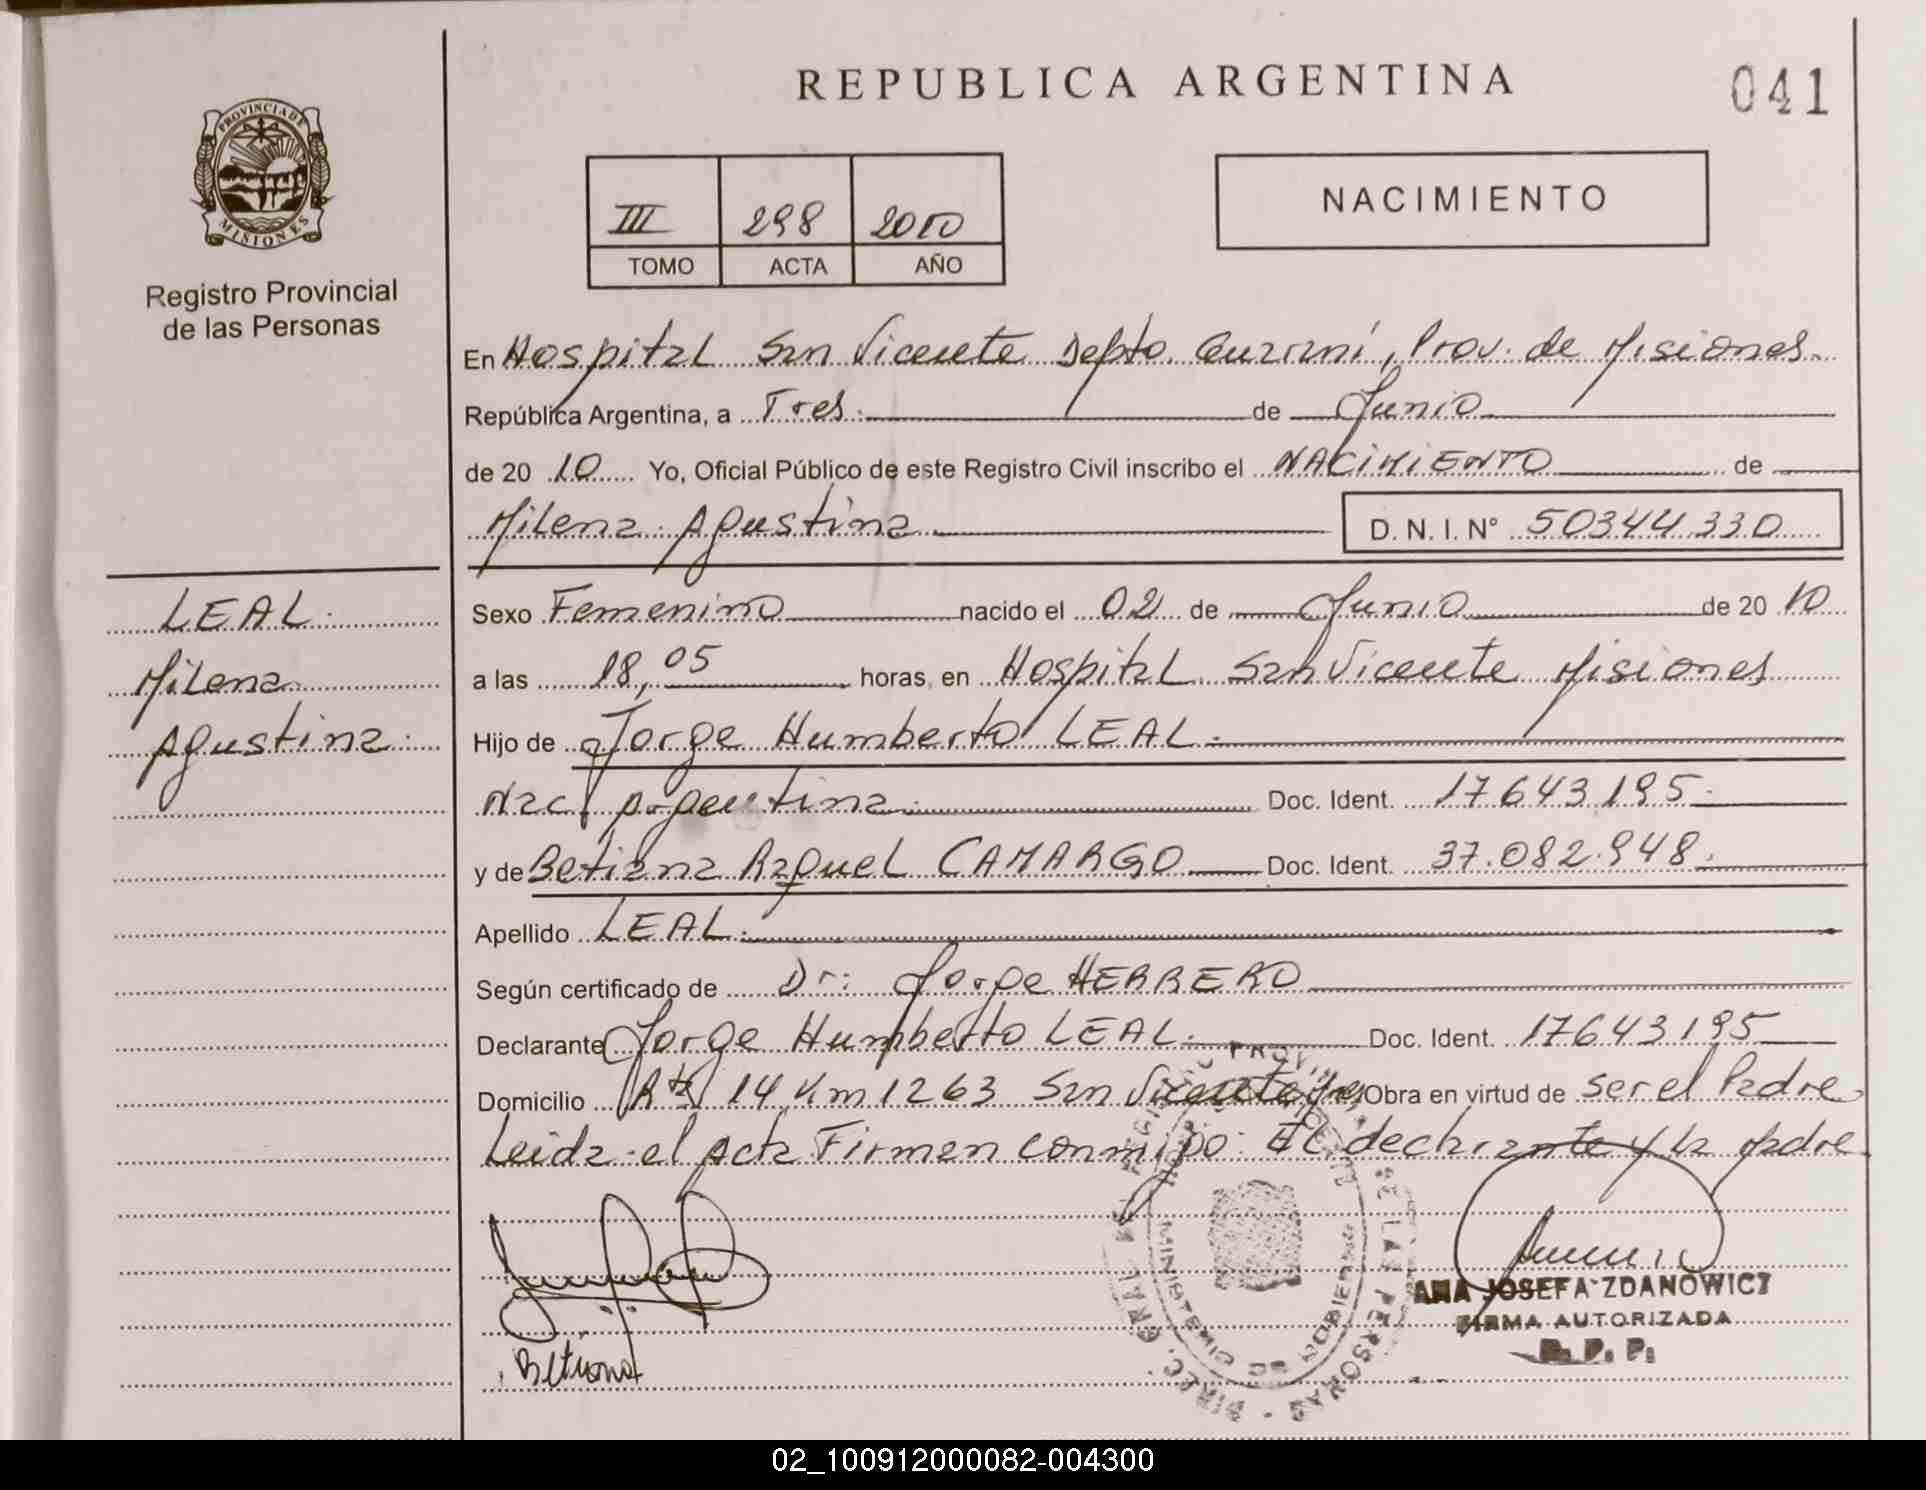 PROVINCIA DE
MISIONES
Registro Provincial
de las Personas
LEAL
Milena
Agustina
REPUBLICA ARGENTINA
041
III 298 2010
TOMO ACTA AÑO
NACIMIENTO
En Hospital San Vicente Depto. Guaraní, Prov. de Misiones
República Argentina, a Tres de Junio
de 20 10 Yo, Oficial Público de este Registro Civil inscribo el NACIMIENTO de
Milena Agustina D. N. I. N° 50344330
Sexo Femenino nacido el 02 de Junio de 20 10
a las 18,05 horas, en Hospital San Vicente Misiones
Hijo de Jorge Humberto LEAL
Nac. Argentina Doc. Ident. 17643195
y de Betiana Raquel CAMARGO Doc. Ident. 37.082.948
Apellido LEAL
Según certificado de Dr: Jorge HERRERO
Declarante Jorge Humberto LEAL Doc. Ident. 17643195
Domicilio Rta 14 Km 1263 San Vicente Obra en virtud de ser el Padre
Leida el Acta Firman conmigo: El declarante y la Madre
Betiana
ANA JOSEFA ZDANOWICZ
FIRMA AUTORIZADA
R. P. P.
02_100912000082-004300